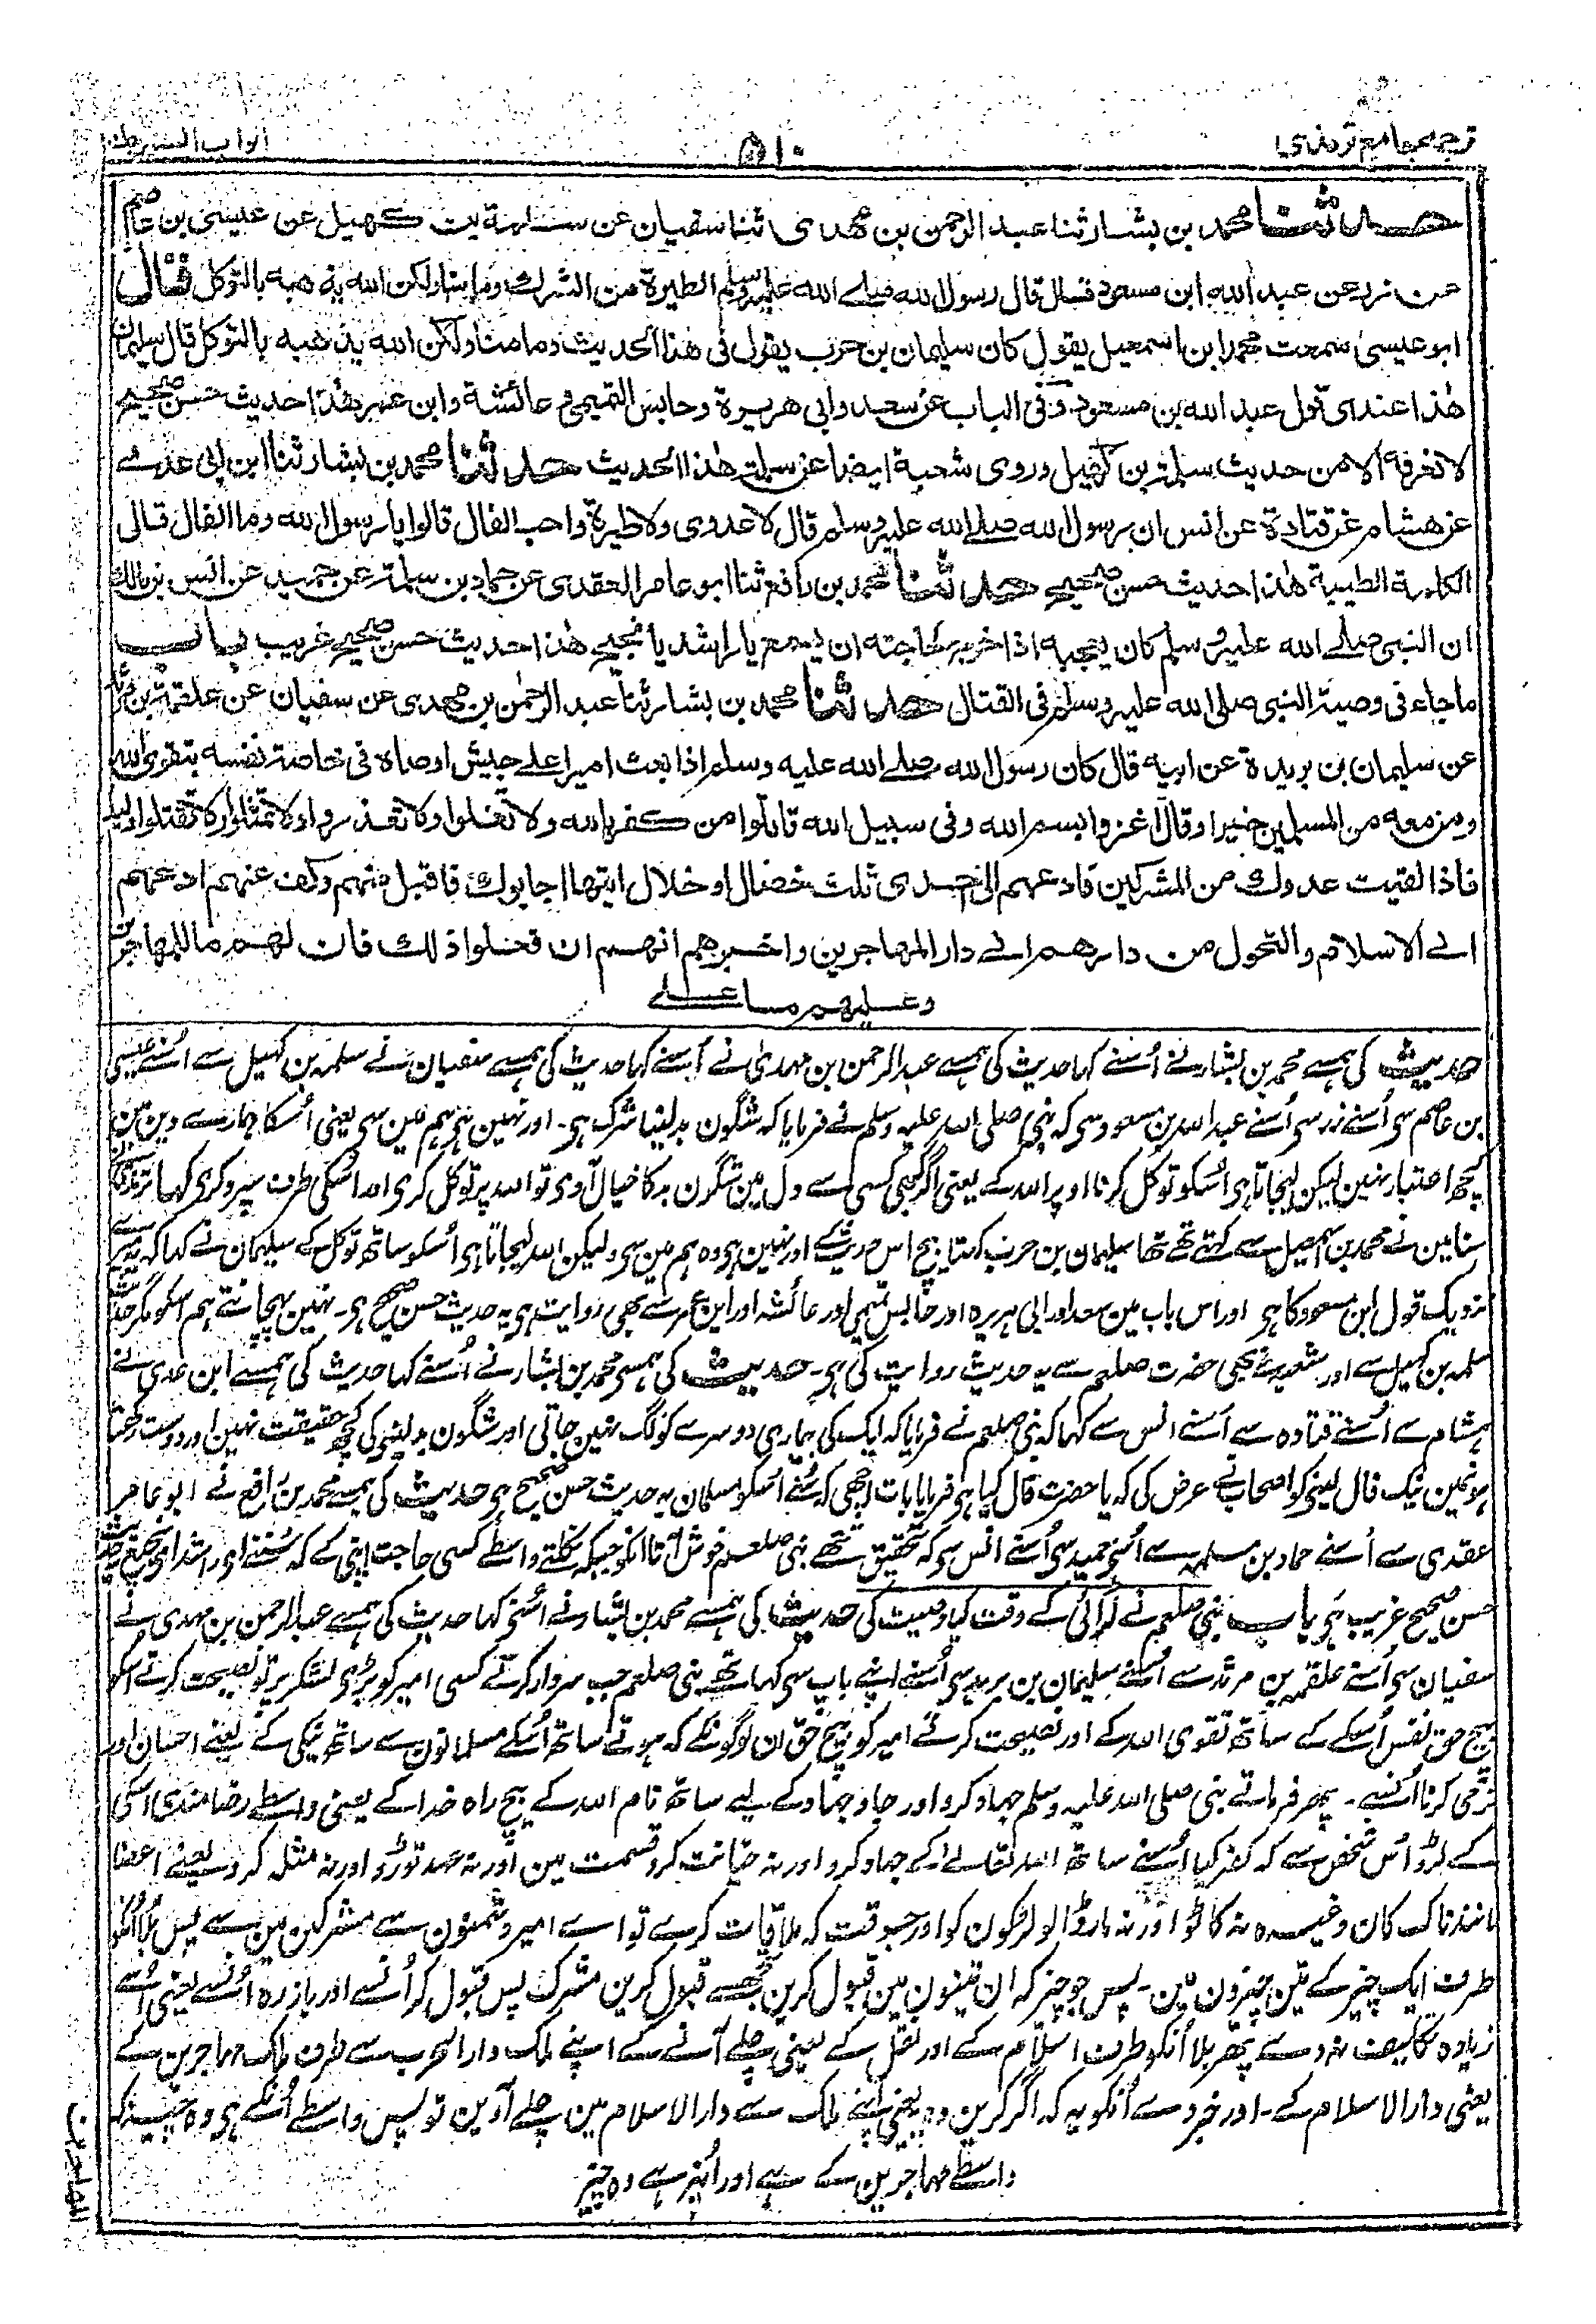 ترجمہ جامع ترمذی
٥١٠
ابواب السیر
حدثنا محمد بن بشار ثنا عبد الرحمن بن مهدی ثنا سفیان عن سلمة بن کهیل عن عیسی بن عاصم
عن زر عن عبد الله ابن مسعود قال قال رسول الله صلے الله علیه وسلم الطیرة من الشرك وما منا ولکن الله یذهبه بالتوکل قال
ابو عیسیٰ سمعت محمد ابن اسمعیل یقول کان سلیمان بن حرب یقول فی هذا الحدیث وما منا ولکن الله یذهبه بالتوکل قال سلیمان
هٰذا عندی قول عبد الله بن مسعود وفی الباب عن سعد وابی هریرة وحابس التمیمی وعائشة وابن عمر هذا حدیث حسن صحیح
لا نعرفه الا من حدیث سلمة بن کهیل وروی شعبة ایضا عن سلمة هٰذا الحدیث حدثنا محمد بن بشار ثنا ابن ابی عدے
عن هشام عن قتادة عن انس ان رسول الله صلے الله علیه وسلم قال لا عدوی ولا طیرة واحب الفال قالوا یا رسول الله وما الفال قال
الکلمة الطیبة هٰذا حدیث حسن صحیح حدثنا محمد بن رافع ثنا ابو عامر العقدی عن حماد بن سلمة عن حمید عن انس بن مالك
ان النبی صلے الله علیه وسلم کان یعجبه اذا خرج لحاجته ان یسمع یا راشد یا نجیح هٰذا حدیث حسن صحیح غریب باب
ما جاء فی وصیة النبی صلی الله علیه وسلم فی القتال حدثنا محمد بن بشار ثنا عبد الرحمٰن بن مهدی عن سفیان عن علقمة بن مرثد
عن سلیمان بن بریدة عن ابیه قال کان رسول الله صلے الله علیه وسلم اذا بعث امیرا علے جیش اوصاه فی خاصة نفسه بتقوی الله
ومن معه من المسلمین خیرا وقال اغزوا بسم الله وفی سبیل الله قاتلوا من کفر بالله ولا تغلوا ولا تغدروا ولا تمثلوا ولا تقتلوا ولیدا
فاذا لقیت عدوك من المشرکین فادعهم الی احدی ثلث خصال او خلال ایتها اجابوك فاقبل منهم وکف عنهم ادعهم
الے الاسلام والتحول من دارهم الے دار المهاجرین واخبرهم انهم ان فعلوا ذلك فان لهم ما للمهاجرین
وعلیهم ما علے
حدیث کی ہمسے محمد بن بشار نے اُسنے کہا حدیث کی ہمسے عبد الرحمن بن مہدی نے اُسنے کہا حدیث کی ہمسے سفیان نے سلمہ بن کہیل سے اُسنے عیسی
بن عاصم سی اُسنے زر سی اُسنے عبد اللہ بن مسعود سی کہ نبی صلی اللہ علیہ وسلم نے فرمایا کہ شگون بد لینا شرک ہی۔ اور نہین ہی ہم مین سی یعنی اُسکا ہمارے دین مین
کچھ اعتبار نہین لیکن لیجاتا ہی اُسکو توکل کرنا اوپر اللہ کے یعنی اگر کبھی کسی کے دل مین شگون بد کا خیال آوی تو اللہ پر توکل کری اور اُسکی طرف سپرد کری کہا ترمذی
سنا مین نے محمد بن اسمعیل سے کہتے تھے تھا سلیمان بن حرب کہتا بیچ اس حدیث کے اور نہین ہی وہ ہم مین سی ولیکن اللہ لیجاتا ہی اُسکو ساتھ توکل کے سلیمان نے کہا کہ یہ میرے
نزدیک قول ابن مسعود کا ہی اور اس باب مین سعد اور ابی ہریرہ اور حابس تمیمی اور عائشہ اور ابن عمر سے بھی روایت ہی یہ حدیث حسن صحیح ہی۔ نہین پہچانتے ہم اسکو مگر حدیث
سلمہ بن کہیل سے اور شعبہ نے بھی حضرت صلعم سے یہ حدیث روایت کی ہی۔ حدیث کی ہمسی محمد بن بشار نے اُسنے کہا حدیث کی ہمسے ابن عدی نے
ہشام سے اُسنے قتادہ سے اُسنے انس سے کہا کہ نبی صلعم نے فرمایا کہ ایک کی بیماری دوسرے کو لگ نہین جاتی اور شگون بد لینی کی کچھ حقیقت نہین اور دوست رکھتا
ہون مین نیک فال لینی کو اصحاب نے عرض کی کہ یا حضرت فال کیا ہی فرمایا بات اچھی کہ سُنے اُسکو مسلمان یہ حدیث حسن صحیح ہی حدیث کی ہمسے محمد بن رافع نے ابو عامر
عقدی سے اُسنے حماد بن سلمہ سے اُسنی حمید سی اُسنے انس سی کہ تحقیق تھے نبی صلعم خوش آتا انکو جبکہ نکلتے واسطے کسی حاجت اپنی کے کہ سُنتے ای راشد ای نجیح یہ حدیث
حسن صحیح غریب ہی باب نبی صلعم نے لڑائی کے وقت کیا وصیت کی حدیث کی ہمسے محمد بن بشار نے اُسنی کہا حدیث کی ہمسے عبد الرحمن بن مہدی نے
سفیان سی اُسنے علقمہ بن مرثد سے اُسنے سلیمان بن بریدہ سی اُسنے اپنے باپ سی کہا تھے نبی صلعم جب سردار کرتے کسی امیر کو بڑی لشکر پر تو نصیحت کرتے اُسکو
بیچ حق نفس اُسکے کے ساتھ تقوی اللہ کے اور نصیحت کرتے امیر کو بیچ حق ان لوگونکے کہ ہوتے ساتھ اُسکے مسلمانون سے ساتھ نیکی کے یعنے احسان اور
نرمی کرنا اُنسے۔ پھر فرماتے نبی صلی اللہ علیہ وسلم جہاد کرو اور جاو جہاد کے لیے ساتھ نام اللہ کے بیچ راہ خدا کے یعنی واسطے رضامندی اسکی
کے لڑو اُس شخص سے کہ کفر کیا اُسنے ساتھ اللہ تعالےٰ کے جہاد کرو اور نہ خیانت کرو قسمت مین اور نہ عہد توڑو اور نہ مثلہ کرو یعنے اعضا
مانند ناک کان وغیرہ نہ کاٹو اور نہ مار ڈالو لڑکون کو اور جسوقت کہ ملاقات کرے تو اے امیر دشمنون سے مشرکین مین سے پس بُلا اُنکو
طرف ایک چیز کے تین چیزون مین۔ پس جو چیز کہ ان تینون مین قبول کرین تجھسے قبول کرین مشرک پس قبول کر اُنسے اور باز رہ اُنسے یعنی اُنسے
زیادہ تکلیف نہ دے پھر بلا اُنکو طرف اسلام کے اور نقل کے یعنی چلے آنے کے اپنے ملک دار الحرب سے طرف ملک مہاجرین کے
یعنی دار الاسلام کے۔ اور خبر دے اُنکو یہ کہ اگر کرین وہ یعنی اپنے ملک سے دار الاسلام مین چلے آوین تو پس واسطے اُنکے ہی وہ چیز کہ
واسطے مہاجرین کے ہے اور اُنپر ہے وہ چیز
المهاجرین